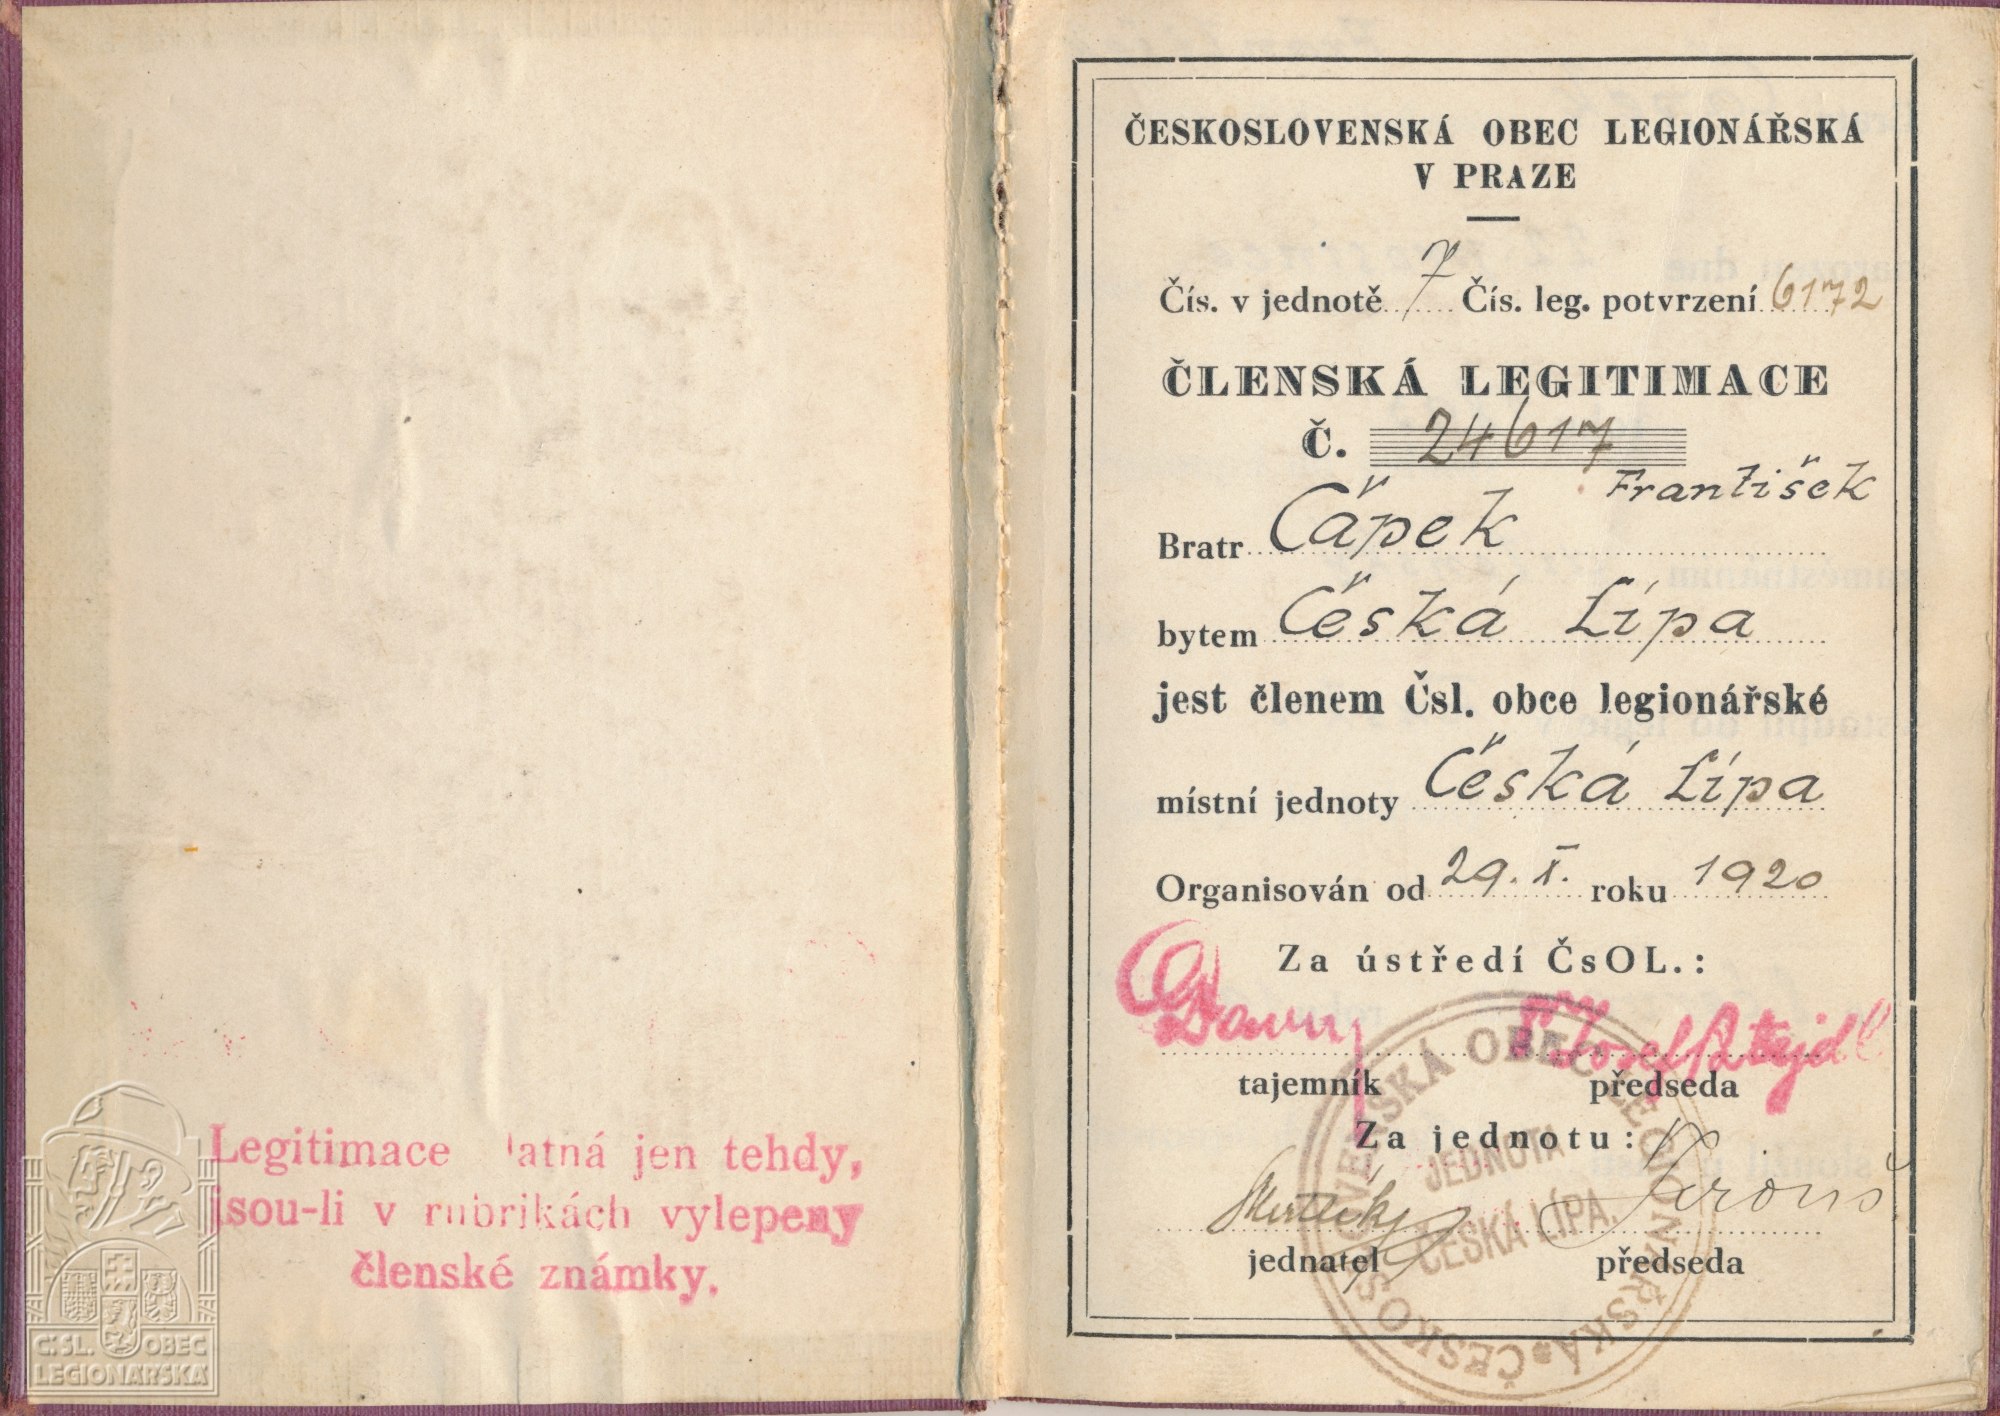 Legitimace latná jen tehdy,
jsou-li v rubrikách vylepeny
členské známky.
Č.SL. OBEC
LEGIONÁŘSKÁ
ČESKOSLOVENSKÁ OBEC LEGIONÁŘSKÁ
V PRAZE
Čís. v jednotě 7 Čís. leg. potvrzení 6172
ČLENSKÁ LEGITIMACE
Č. 24617
František
Bratr Čápek
bytem Česká Lípa
jest členem Čsl. obce legionářské
místní jednoty Česká Lípa
Organisován od 29. X. roku 1920
Za ústředí ČsOL.:
tajemník předseda
Za jednotu:
jednatel předseda
ČESKOSLOVENSKÁ OBEC LEGIONÁŘSKÁ
JEDNOTA
ČESKÁ LÍPA.